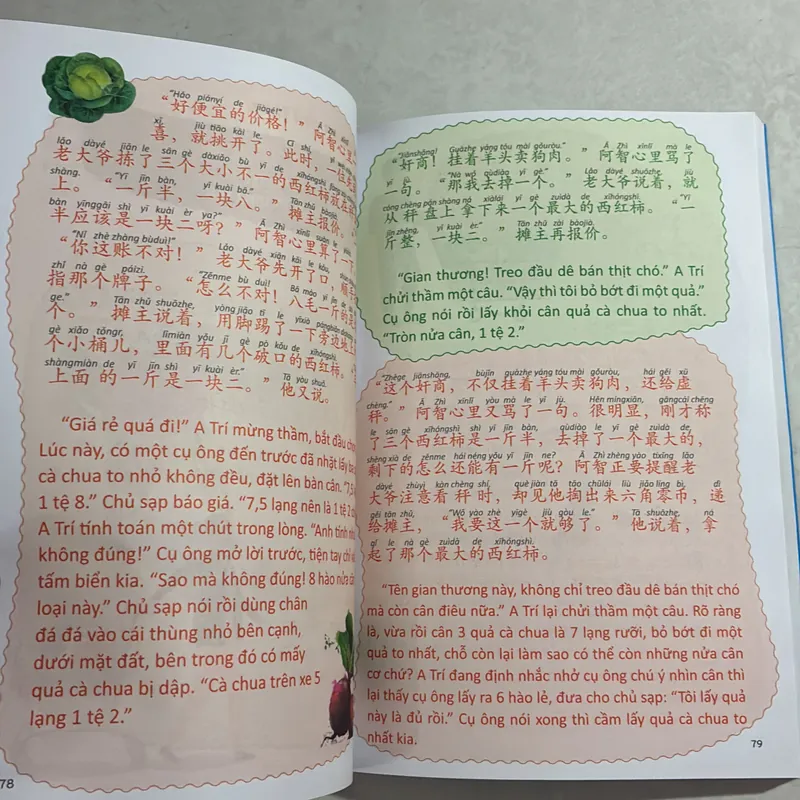 "Hǎo piányi de jiàgé!" Ā Zhì
"好便宜的价格!" 阿智心里
xǐ, jiù tiāo kāi le. Cǐ shí,
喜,就挑开了。此时,一位
lǎo dàyé jiǎn le sān gè dàxiǎo bù yī de xīhóngshì
老大爷拣了三个大小不一的西红柿放在
shàng. "Yī jīn bàn, yī kuài bā." Tān zhǔ
上。"一斤半,一块八。" 摊主报价。
bàn yīnggāi shì yī kuài èr ya?" Ā Zhì xīnli suàn le
半应该是一块二呀?" 阿智心里算了
"Nǐ zhè zhàng bùduì!" Lǎo dàyé xiān kāi le kǒu,
"你这账不对!" 老大爷先开了口,顺
zhǐ nà gè páizi. "Zěnme bù duì! Bā máo yī jīn de
指那个牌子。"怎么不对!八毛一斤的是
ge." Tān zhǔ shuōzhe, yòng jiǎo tī le yīxià pángbiān
个。" 摊主说着,用脚踢了一下旁边地上
gè xiǎo tǒngr, lǐmiàn yǒu jǐ gè pò kǒu de xīhóngshì.
个小桶儿,里面有几个破口的西红柿。
shàngmiàn de yī jīn shì yī kuài èr." Tā yòu shuō.
上面 的一斤是一块二。" 他又说。
"Giá rẻ quá đi!" A Trí mừng thầm, bắt đầu
Lúc này, có một cụ ông đến trước đã nhặt lấy
cà chua to nhỏ không đều, đặt lên bàn cân.
1 tệ 8." Chủ sạp báo giá. "7,5 lạng nên là 1 tệ 2
A Trí tính toán một chút trong lòng. "Anh tính
không đúng!" Cụ ông mở lời trước, tiện tay chỉ
tấm biển kia. "Sao mà không đúng! 8 hào nửa
loại này." Chủ sạp nói rồi dùng chân
đá đá vào cái thùng nhỏ bên cạnh,
dưới mặt đất, bên trong đó có mấy
quả cà chua bị dập. "Cà chua trên xe 5
lạng 1 tệ 2."
78
"Jiānshāng! Guàzhe yáng tóu mài gǒuròu." Ā Zhì xīnlǐ mà le
"奸商!挂着羊头卖狗肉。" 阿智心里骂了
yī jù. "Nà wǒ qùdiào yī gè." Lǎo dàyé shuōzhe, jiù
一句。"那我去掉一个。" 老大爷说着,就
cóng chèng pán shàng ná xiàlái yī gè zuìdà de xīhóngshì. "Yī
从秤盘上拿下来一个最大的西红柿。"一
jīn zhěng, yī kuài èr." Tān zhǔ zài bàojià.
斤整,一块二。" 摊主再报价。
"Gian thương! Treo đầu dê bán thịt chó." A Trí
chửi thầm một câu. "Vậy thì tôi bỏ bớt đi một quả."
Cụ ông nói rồi lấy khỏi cân quả cà chua to nhất.
"Tròn nửa cân, 1 tệ 2."
"Zhège jiānshāng, bùjǐn guàzhe yáng tóu mài gǒuròu, hái gěi xū
"这个奸商,不仅挂着羊头卖狗肉,还给虚
chèng." Ā Zhì xīnlǐ yòu mà le yī jù. Hěn míngxiǎn, gāngcái chēng
秤。" 阿智心里又骂了一句。很明显,刚才称
le sān gè xīhóngshì shì yī jīn bàn, qùdiào le yī gè zuìdà de,
了三个西红柿是一斤半,去掉了一个最大的,
shèng xià de zěnme hái néng yǒu yī jīn ne? Ā Zhì zhèng yào tíxǐng lǎo
剩下的怎么还能有一斤呢?阿智正要提醒老
dàyé zhùyì kàn chèng shí, què jiàn tā tāo chū lái liù jiǎo líng bì, dì
大爷注意看 秤时,却见他掏出来六角零币,递
gěi tān zhǔ, "Wǒ yào zhè yīgè jiù gòu le." Tā shuōzhe, ná
给摊主,"我要这一个就够了。" 他说着,拿
qǐ le nà gè zuìdà de xīhóngshì.
起了那个最大的西红柿。
"Tên gian thương này, không chỉ treo đầu dê bán thịt chó
mà còn cân điêu nữa." A Trí lại chửi thầm một câu. Rõ ràng
là, vừa rồi cân 3 quả cà chua là 7 lạng rưỡi, bỏ bớt đi một
quả to nhất, chỗ còn lại làm sao có thể còn những nửa cân
cơ chứ? A Trí đang định nhắc nhở cụ ông chú ý nhìn cân thì
lại thấy cụ ông lấy ra 6 hào lẻ, đưa cho chủ sạp: "Tôi lấy quả
này là đủ rồi." Cụ ông nói xong thì cầm lấy quả cà chua to
nhất kia.
79